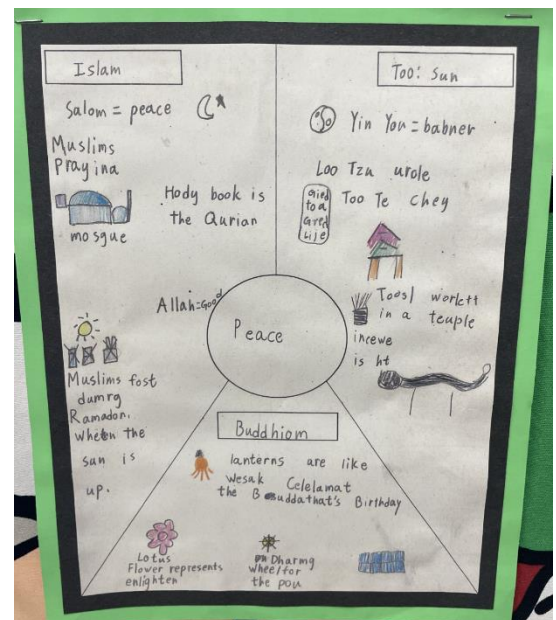 Islam
Salom = peace
Muslims
Prayina
mosgue
Hody book is
the Qurian
Allah=Good
Muslims fost
dumrg
Ramadon.
wheten the
sun is
up.
Too: sun
Yin You = babner
Loo Tzu urole
Too Te Chey
Gied
to a
Gred
Lije
Toosl worlett
in a teuple
incewe
is ht
Peace
Buddhiom
lanterns are like
Wesuk Celelamat
the Buddathat's Birthday
Lotus
Flower represents
enlighten
Dharmg
wheel for
the pou